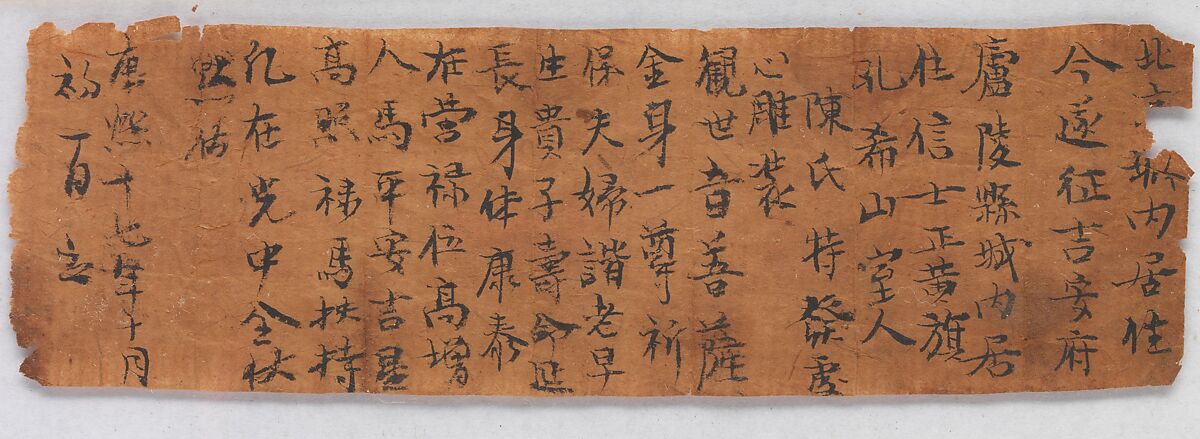 北京城內居住
今遂征吉安府
廬陵縣城內居
住信士正黃旗
孔希山室人
陳氏特發虔
心雕裝
觀世音菩薩
金身一尊祈
保夫婦諧老早
生貴子壽命延
長身体康泰
在營祿位高增
人馬平安吉星
高照祿馬扶持
凡在光中全仗
默佑
康熙十七年十月
初一日立